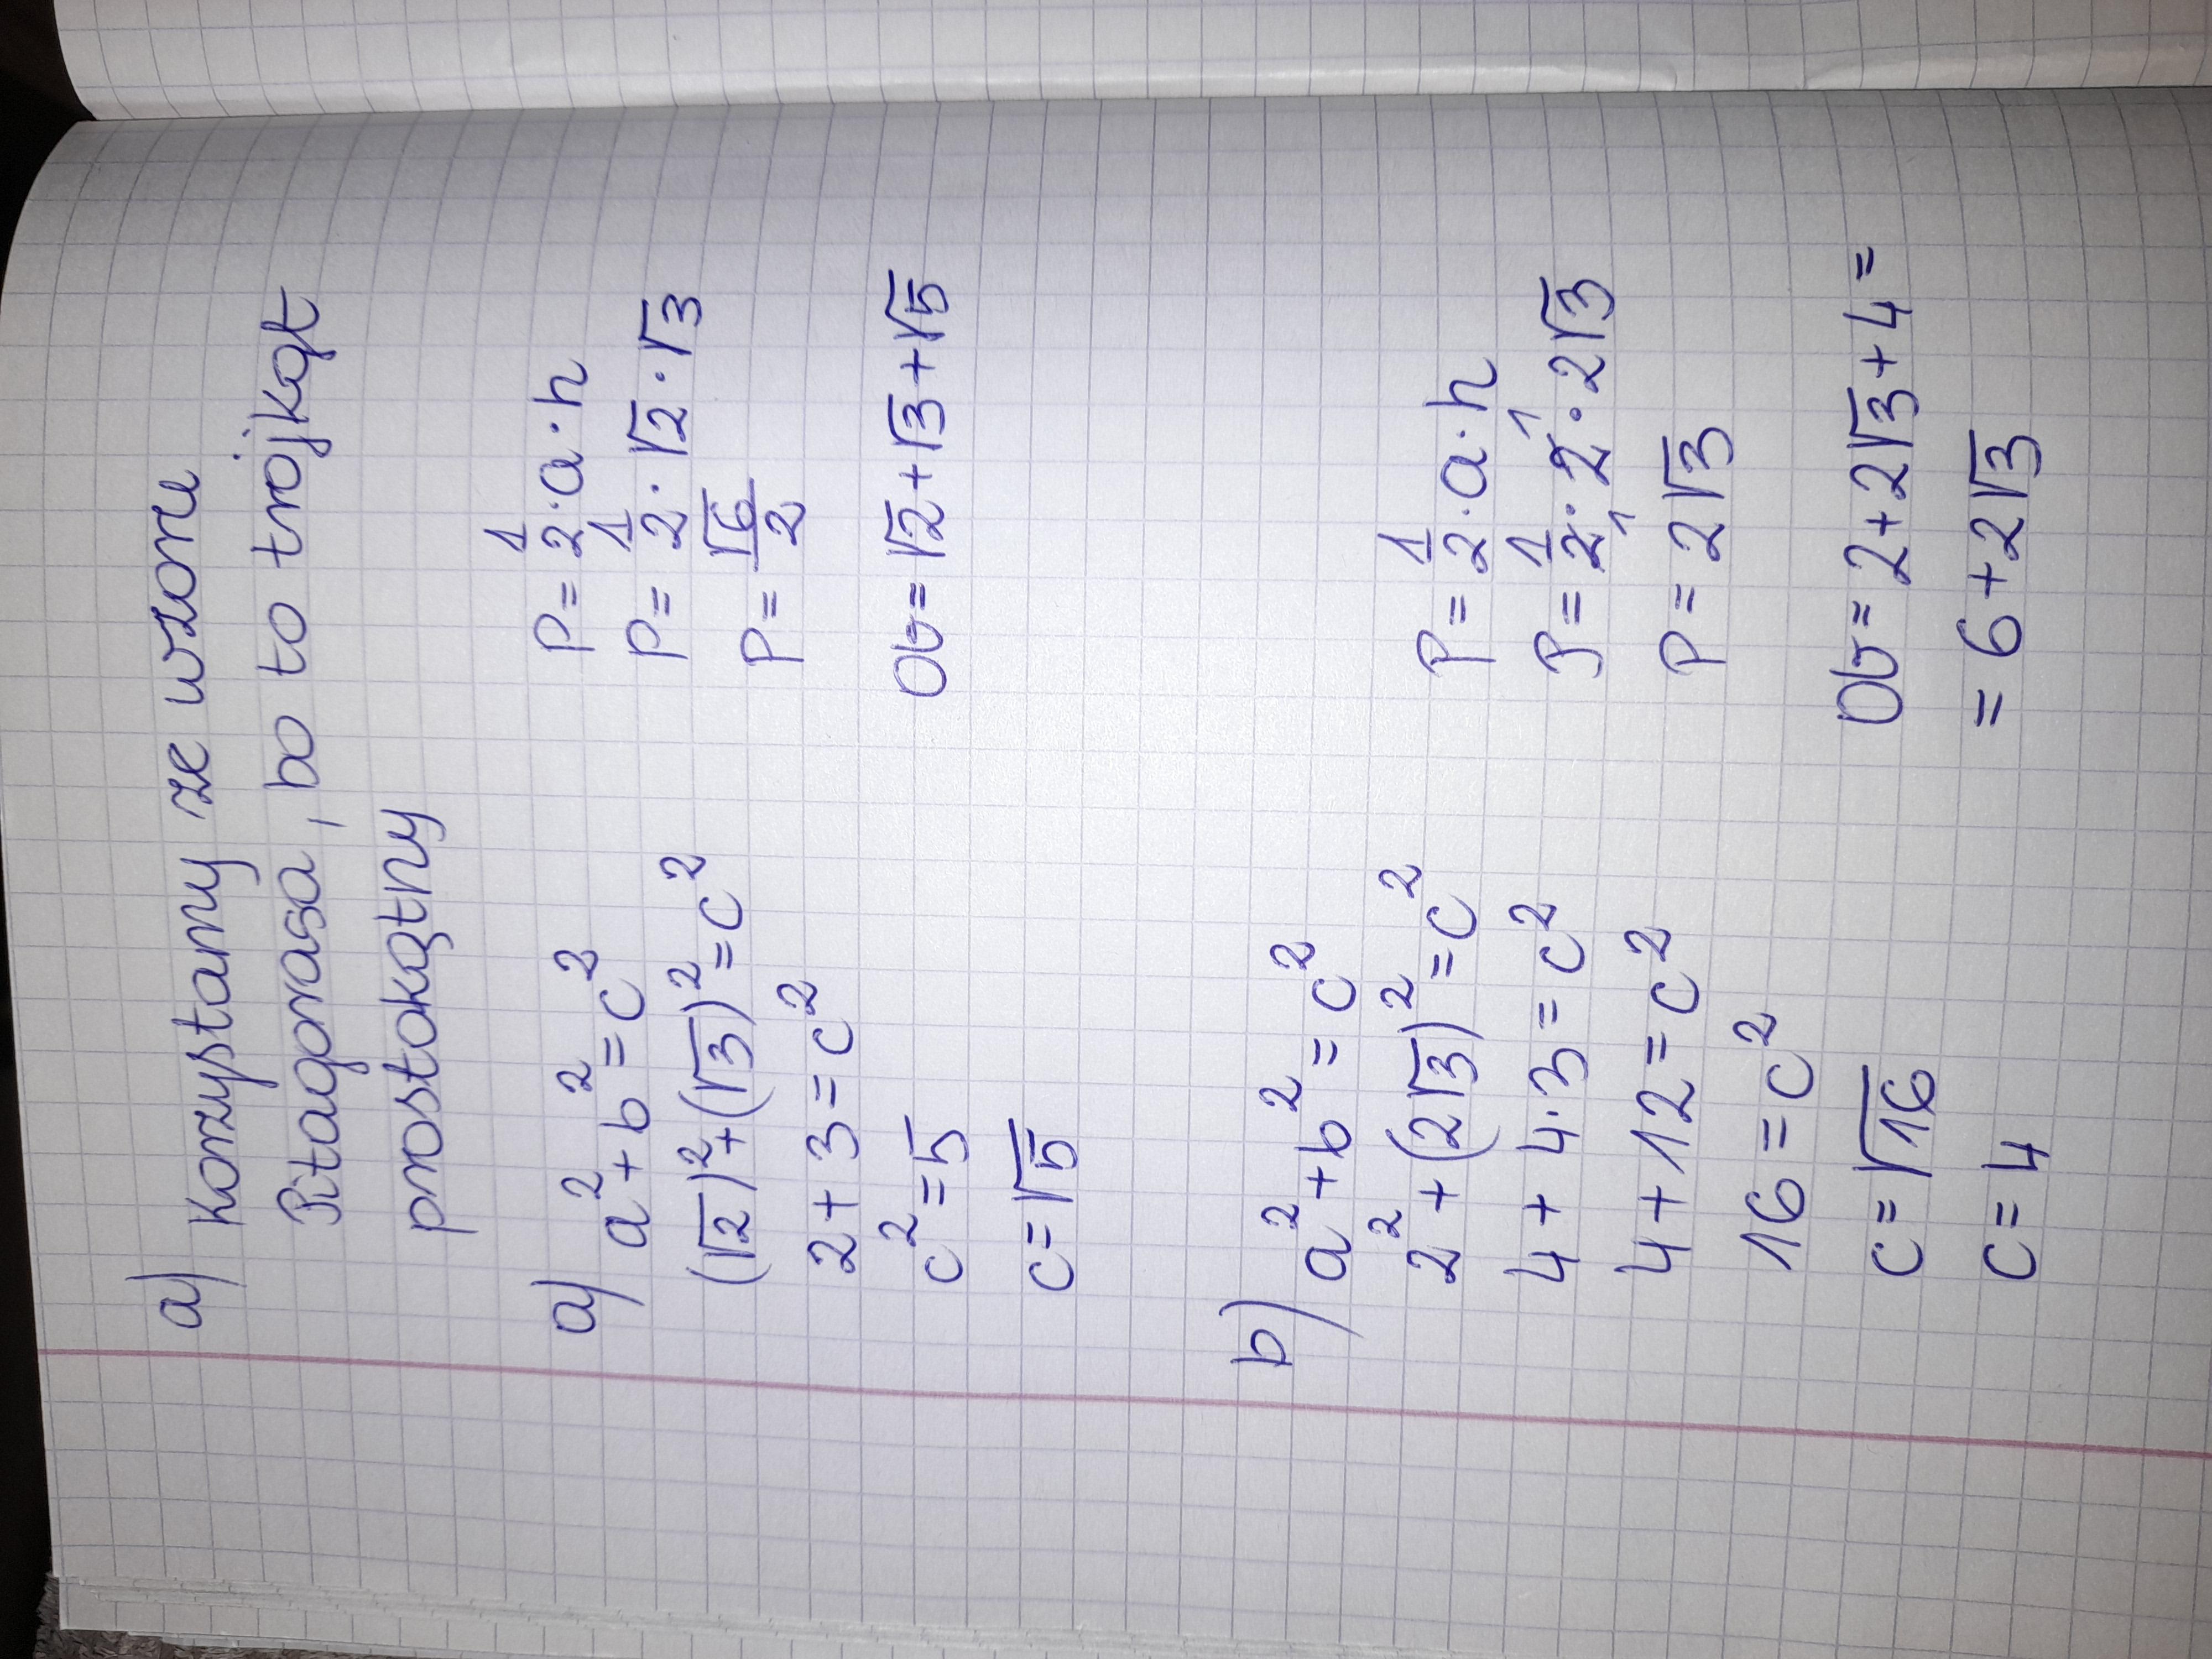 a) Korzystamy ze wzoru
Pitagorasa, bo to trójkąt
prostokątny
a) a²+b²=c²
(√2)²+(√3)²=c²
2+3=c²
c²=5
c=√5
P=1/2·a·h
P=1/2·√2·√3
P=√6/2
Ob=√2+√3+√5
b) a²+b²=c²
2²+(2√3)²=c²
4+4·3=c²
4+12=c²
16=c²
c=√16
c=4
P=1/2·a·h
P=1/2₁·2¹·2√3
P=2√3
Ob=2+2√3+4=
=6+2√3